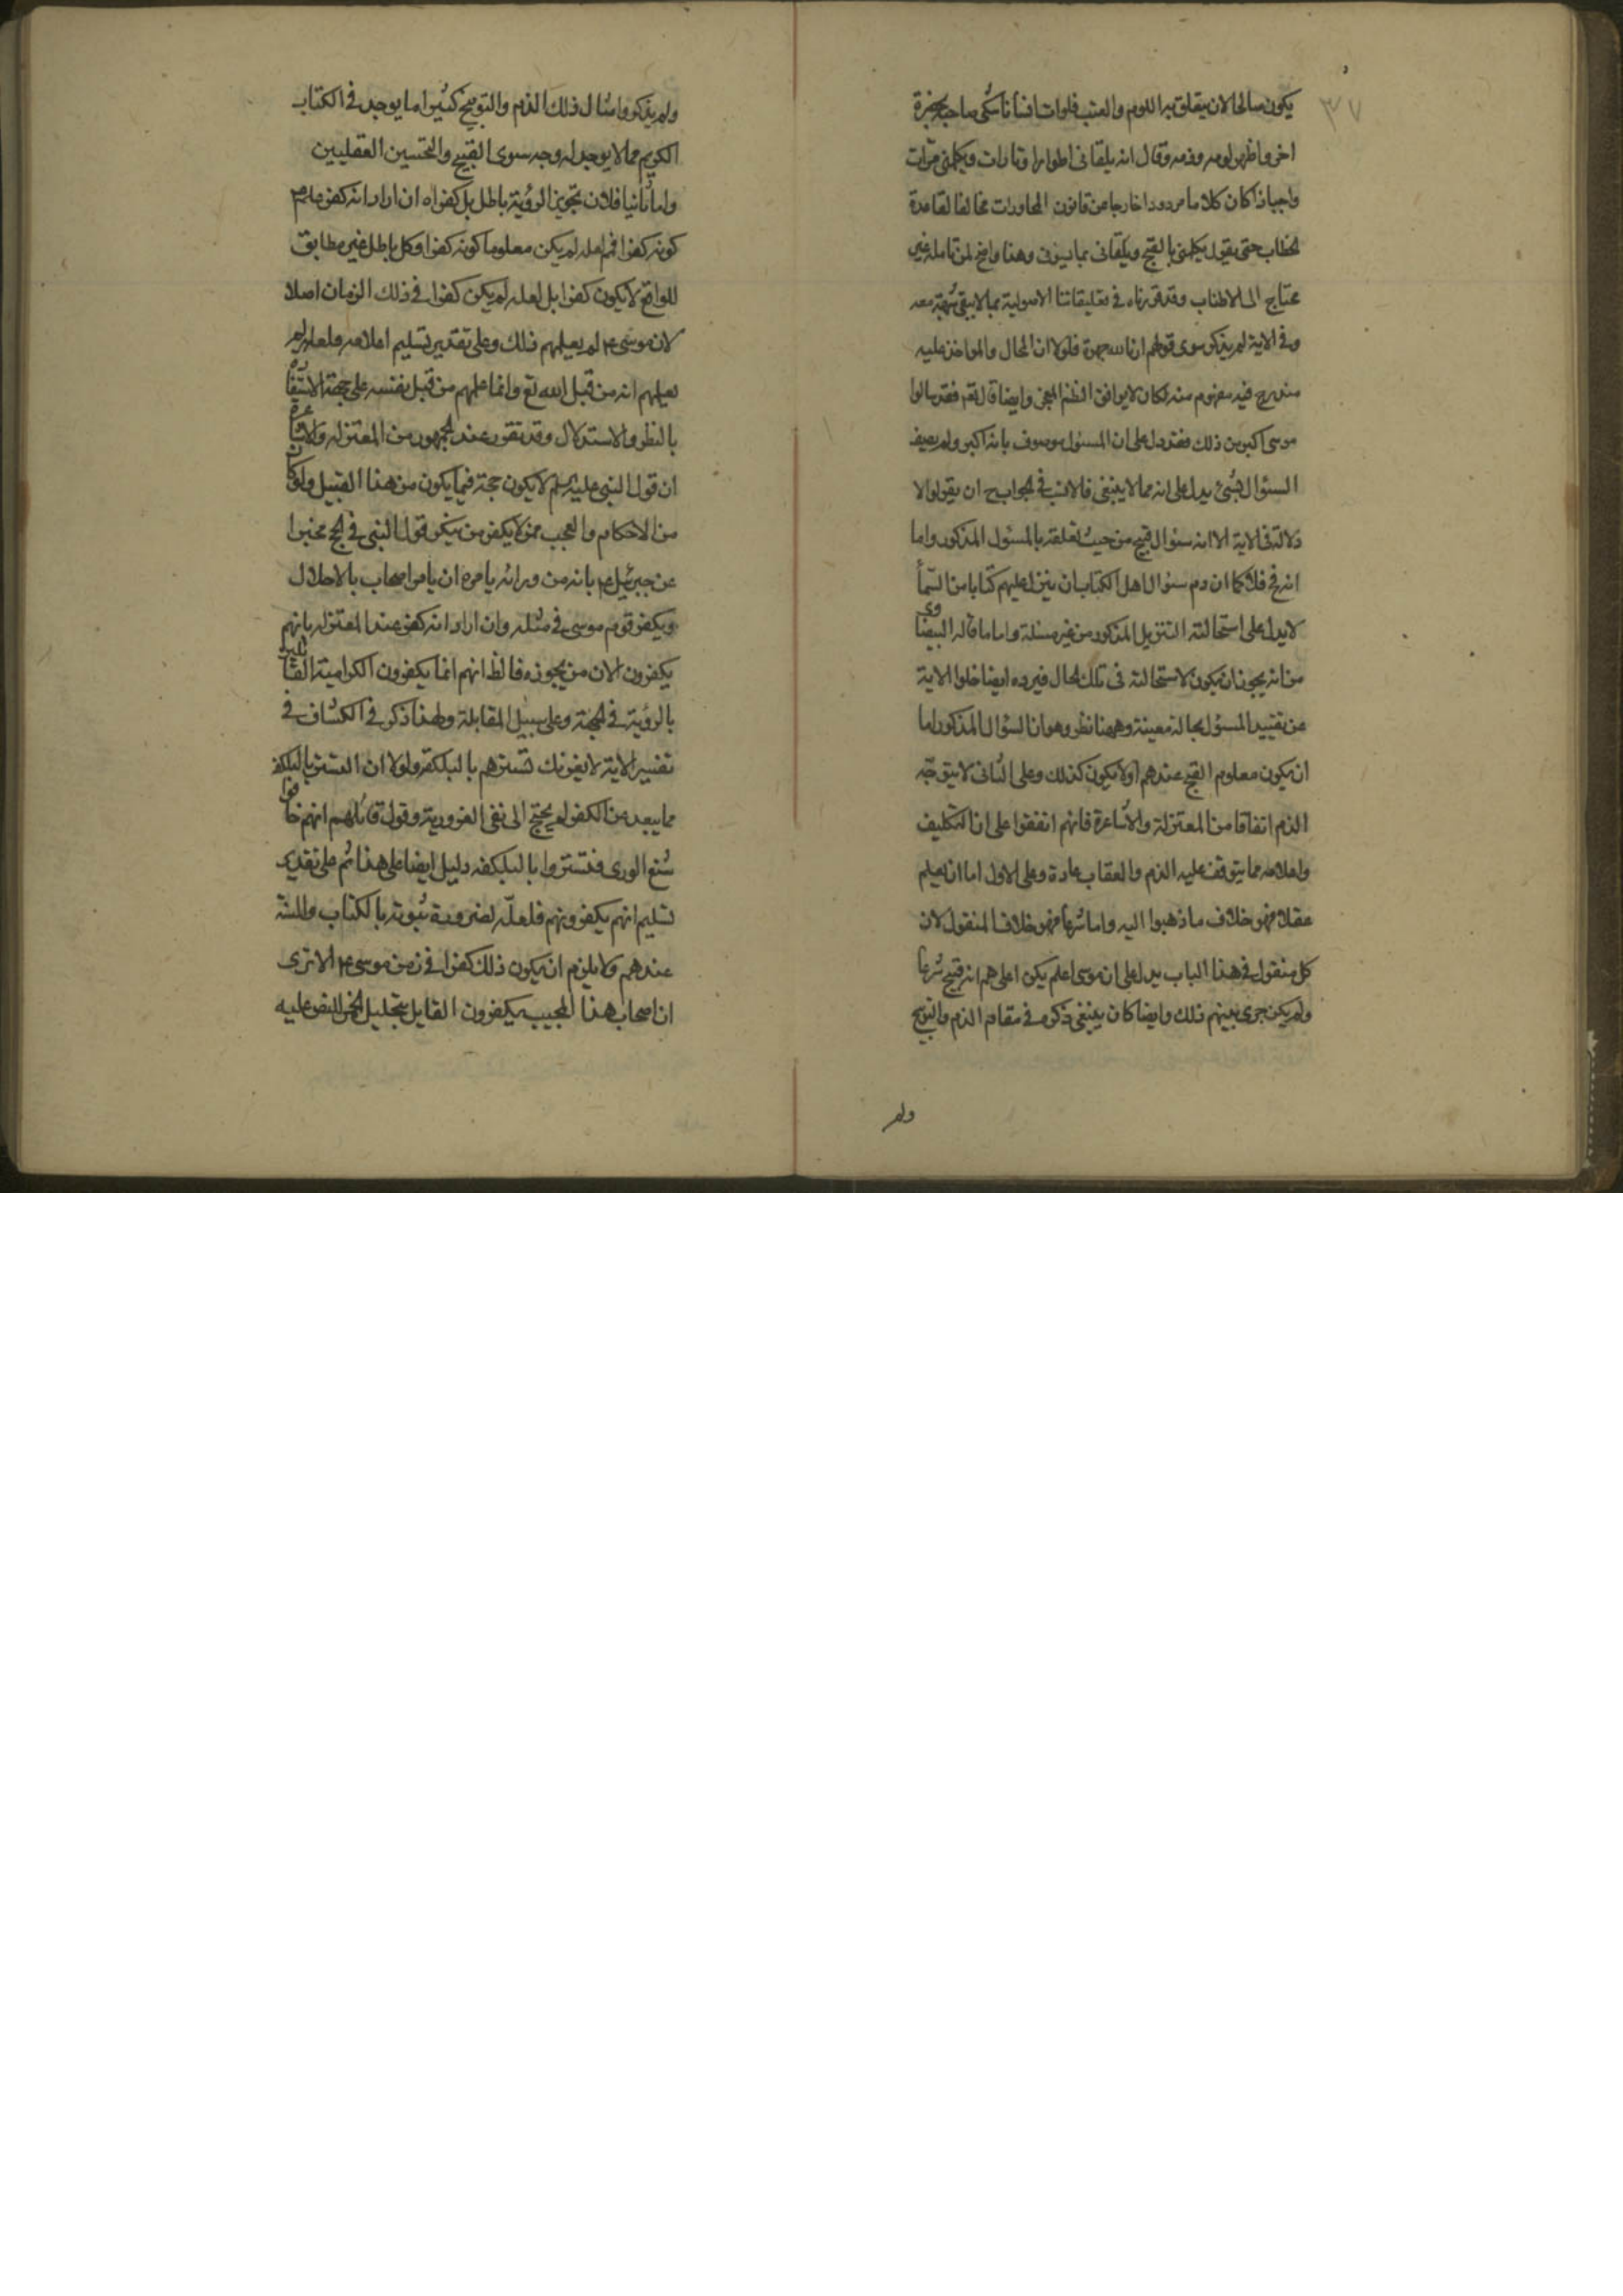 ٣٧
يكون صالحا لان يتعلق به اللوم والعتب فلوات انسانا شكى صاحبه بحضرة
اخر واظهر لومه وذمه وقال انه يلقانى اطوارا وتارات ويكلمنى مرات
واجيا ذا كان كلاما مردودا خارجا من قانون المحاورات مخالفا لقاعدة
الخطاب حتى يقول يكلمنى بالقبح ويلقانى بما يسؤنى وهذا واضح لمن تامله غير
محتاج الى الاطناب وقد قررناه فى تعليقاتنا الاصولية بما لا يبقى شبهة معه
وفى الاية لم يذكر سوى قولهم ارنا الله جهرة فلولا ان المحال والمواخذ عليه
مندرج فيه مفهوم منه لكان لا يوافق النظم المعجز وايضا قال تع فقد سالوا
موسى اكبر من ذلك فقد دل على ان المسئول موصوف بانه اكبر ولم يصف
السئوال بشئ يدل على انه مما لا ينبغى فالانسب فى الجواب ح ان يقولوا لا
دلالة فى الاية الا انه سئوال قبيح من حيث تعلقه بالمسئول المذكور واما
انه مح فلا كما ان ذم سئوال اهل الكتاب ان ينزل عليهم كتابا من السماء
لا يدل على استحالة التنزيل المذكور من غير مسئلة واما ما قاله البيضاوى
من انه يجوز ان يكون لاستحالته فى تلك الحال فيرده ايضا خلوا الاية
عن تقييد المسئول بحالة معينة وههنا نظر وهو ان السئوال المذكور اما
ان يكون معلوم القبح عندهم اولا يكون كذلك وعلى الثانى لا يتوجه
الذم اتفاقا من المعتزلة والاشاعرة فانهم اتفقوا على ان التكليف
واعلامه مما يتوقف عليه الذم والعقاب عادة وعلى الاول اما ان يعلم
عقلا فهو خلاف ما ذهبوا اليه واما شرعا فهو خلاف المنقول لان
كل منقول فى هذا الباب يدل على ان موسى اعلم يكن اعلمهم انه قبيح شرعا
ولم يكن جرى بينهم ذلك وايضا كان ينبغى ذكره فى مقام الذم والتوبيخ
ولم
ولم يذكروا مثال ذلك الذم والتوبيخ كثيرا ما يوجد فى الكتاب
الكريم مما لا يوجد له وجه سوى القبيح والتحسين العقليين
واما ثانيا فلان تجويز الرؤية باطل بل كفراه ان اراد انه كفر علم
كونه كفرا فح لعله لم يكن معلوما كونه كفرا وكل باطل غير مطابق
للواقع لا يكون كفرا بل لعله لم يكن كفرا فى ذلك الزمان اصلا
لان موسى ع لم يعلمهم ذلك وعلى تقدير تسليم اعلامه فلعله لم
يعلمهم انه من قبل الله تع وانما علمهم من قبل نفسه على جهة الاستفادة
بالنظر والاستدلال وقد تقرر عند الجمهور من المعتزلة والاشاعرة
ان قول النبى عليه السلم لا يكون حجة فيما يكون من هذا القبيل ولو كان
من الاحكام والعجب ممن لا يكفر من ينكر قول النبى فى الحج مخبرا
عن جبرئيل ع بانه من ورائه يامره ان يامر اصحاب بالاحلال
ويكفر قوم موسى فى مثله وان اراد انه كفر عند المعتزلة بانهم
يكفرون الان من يجوزه فالظ انهم انما يكفرون الكرامية القائلة
بالرؤية فى الجهة وعلى سبيل المقابلة ولهذا ذكر فى الكشاف فى
تفسير الاية لا يغرنك تسترهم بالبلكفة ولولا ان التستر بالبلكفة
مما يبعد عن الكفر لم يحتج الى نفى الغرورية وقول قائلهم انهم خافوا
شنع الورى فتستروا بالبلكفه دليل ايضا على هذا ثم على تقدير
تسليم انهم يكفرونهم فلعله لضرورة ثبوته بالكتاب والسنة
عندهم ولا يلزم ان يكون ذلك كفرا فى زمن موسى ع الا ترى
ان اصحاب هذا المجيب يكفرون القايل بتحليل الخمر للنص عليه